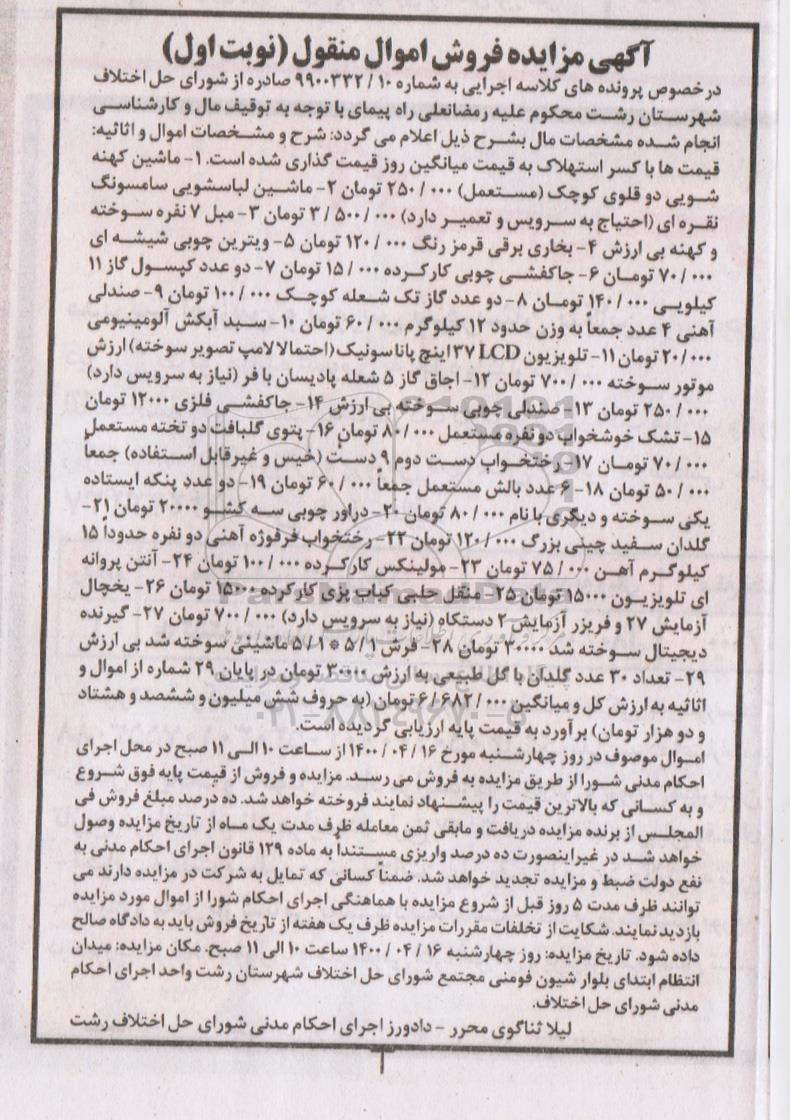 آگهی مزایده فروش اموال منقول (نوبت اول)
درخصوص پرونده های کلاسه اجرایی به شماره ۱۰ / ۹۹۰۰۳۳۲ صادره از شورای حل اختلاف
شهرستان رشت محکوم علیه رمضانعلی راه پیمای با توجه به توقیف مال و کارشناسی
انجام شده مشخصات مال بشرح ذیل اعلام می گردد: شرح و مشخصات اموال و اثاثیه:
قیمت ها با کسر استهلاک به قیمت میانگین روز قیمت گذاری شده است. ۱- ماشین کهنه
شویی دو قلوی کوچک (مستعمل) ۰۰۰ / ۲۵۰ تومان ۲- ماشین لباسشویی سامسونگ
نقره ای (احتیاج به سرویس و تعمیر دارد) ۰۰۰ / ۵۰۰ / ۳ تومان ۳- مبل ۷ نفره سوخته
و کهنه بی ارزش ۴- بخاری برقی قرمز رنگ ۰۰۰ / ۱۲۰ تومان ۵- ویترین چوبی شیشه ای
۰۰۰ / ۷۰ تومان ۶- جاکفشی چوبی کارکرده ۰۰۰ / ۱۵ تومان ۷- دو عدد کپسول گاز ۱۱
کیلویی ۰۰۰ / ۱۴۰ تومان ۸- دو عدد گاز تک شعله کوچک ۰۰۰ / ۱۰۰ تومان ۹- صندلی
آهنی ۴ عدد جمعاً به وزن حدود ۱۲ کیلوگرم ۰۰۰ / ۶۰ تومان ۱۰- سبد آبکش آلومینیومی
۲۰/۰۰۰ تومان ۱۱- تلویزیون LCD ۳۷ اینچ پاناسونیک (احتمالا لامپ تصویر سوخته) ارزش
موتور سوخته ۰۰۰ / ۷۰۰ تومان ۱۲- اجاق گاز ۵ شعله پادیسان با فر (نیاز به سرویس دارد)
۰۰۰ / ۲۵۰ تومان ۱۳- صندلی چوبی سوخته بی ارزش ۱۴- جاکفشی فلزی ۱۲۰۰۰ تومان
۱۵- تشک خوشخواب دو نفره مستعمل ۰۰۰ / ۸۰ تومان ۱۶- پتوی گلبافت دو تخته مستعمل
۰۰۰ / ۷۰ تومان ۱۷- رختخواب دست دوم ۹ دست (خیس و غیرقابل استفاده) جمعاً
۰۰۰ / ۵۰ تومان ۱۸- ۶ عدد بالش مستعمل جمعاً ۰۰۰ / ۶۰ تومان ۱۹- دو عدد پنکه ایستاده
یکی سوخته و دیگری با نام ۰۰۰ / ۸۰ تومان ۲۰- دراور چوبی سه کشو ۲۰۰۰۰ تومان ۲۱-
گلدان سفید چینی بزرگ ۰۰۰ / ۱۲۰ تومان ۲۲- رختخواب فرفوژه آهنی دو نفره حدوداً ۱۵
کیلوگرم آهن ۰۰۰ / ۷۵ تومان ۲۳- مولینکس کارکرده ۰۰۰ / ۱۰۰ تومان ۲۴- آنتن پروانه
ای تلویزیون ۱۵۰۰۰ تومان ۲۵- منقل حلبی کباب پزی کارکرده ۱۵۰۰۰ تومان ۲۶- یخچال
آزمایش ۲۷ و فریزر آزمایش ۲ دستگاه (نیاز به سرویس دارد) ۰۰۰ / ۷۰۰ تومان ۲۷- گیرنده
دیجیتال سوخته شد ۳۰۰۰۰ تومان ۲۸- فرش ۱ / ۵ * ۱ / ۵ ماشینی سوخته شد بی ارزش
۲۹- تعداد ۳۰ عدد گلدان با گل طبیعی به ارزش ۳۰۰۰۰ تومان در پایان ۲۹ شماره از اموال و
اثاثیه به ارزش کل و میانگین ۰۰۰ / ۶۸۲ / ۶ تومان (به حروف شش میلیون و ششصد و هشتاد
و دو هزار تومان) برآورد به قیمت پایه ارزیابی گردیده است.
اموال موصوف در روز چهارشنبه مورخ ۱۶ / ۰۴ / ۱۴۰۰ از ساعت ۱۰ الی ۱۱ صبح در محل اجرای
احکام مدنی شورا از طریق مزایده به فروش می رسد. مزایده و فروش از قیمت پایه فوق شروع
و به کسانی که بالاترین قیمت را پیشنهاد نمایند فروخته خواهد شد. ده درصد مبلغ فروش فی
المجلس از برنده مزایده دریافت و مابقی ثمن معامله ظرف مدت یک ماه از تاریخ مزایده وصول
خواهد شد در غیر اینصورت ده درصد واریزی مستنداً به ماده ۱۲۹ قانون اجرای احکام مدنی به
نفع دولت ضبط و مزایده تجدید خواهد شد. ضمناً کسانی که تمایل به شرکت در مزایده دارند می
توانند ظرف مدت ۵ روز قبل از شروع مزایده با هماهنگی اجرای احکام شورا از اموال مورد مزایده
بازدید نمایند. شکایت از تخلفات مقررات مزایده ظرف یک هفته از تاریخ فروش باید به دادگاه صالح
داده شود. تاریخ مزایده: روز چهارشنبه ۱۶ / ۰۴ / ۱۴۰۰ ساعت ۱۰ الی ۱۱ صبح. مکان مزایده: میدان
انتظام ابتدای بلوار شیون فومنی مجتمع شورای حل اختلاف شهرستان رشت واحد اجرای احکام
مدنی شورای حل اختلاف.
لیلا ثناگوی محرر - دادورز اجرای احکام مدنی شورای حل اختلاف رشت
ParsNamadData
۰۲۱-۸۸۳۴۹۶۷۰-۵